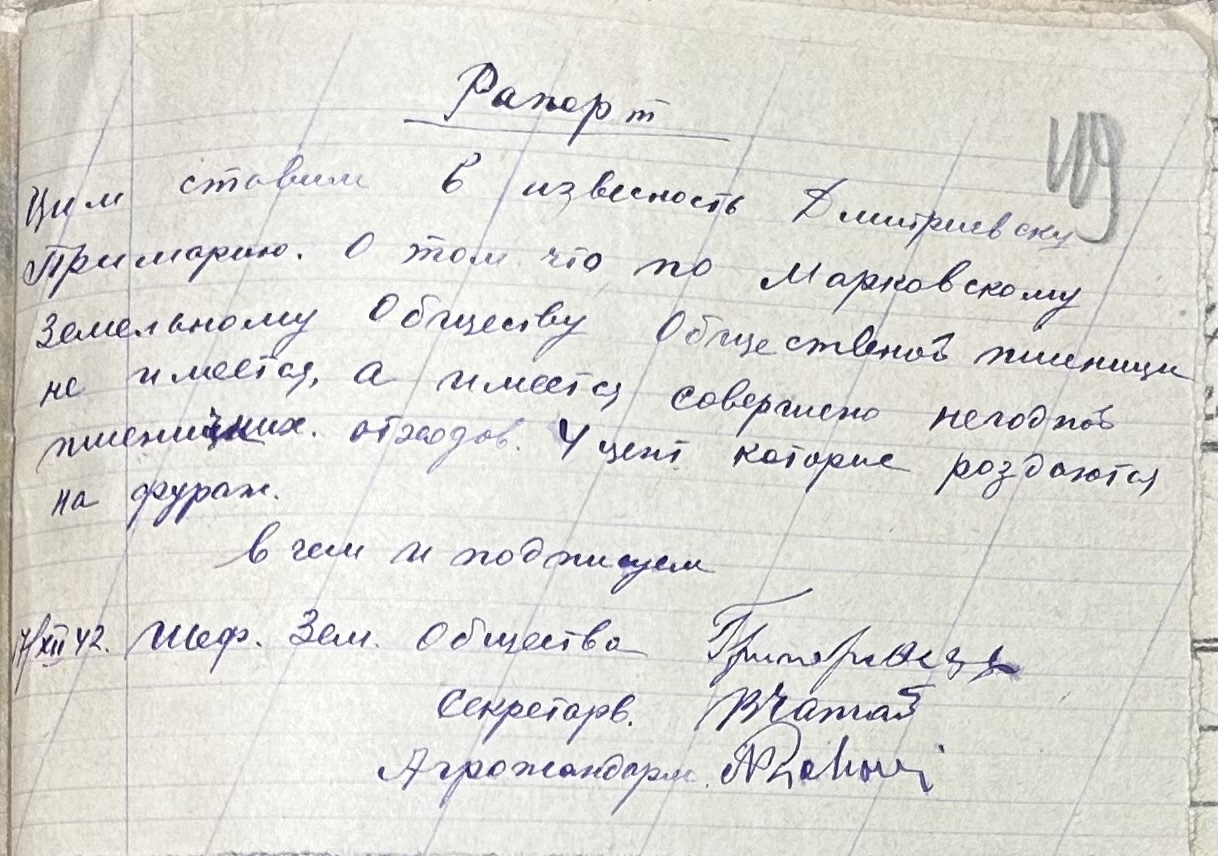 Рапорт
119
Цим ставим в извесность Дмитриевску
Примарию. О том что по Марковскому
Земельному Обществу Общественой пшеници
не имеется, а имеется совершено негодной
пшеничних. отходов. 4 цент которие роздаются
на фураж.
в чем и подписуем
7/XII 42. Шеф. Зем. Общества
Секретарь.
Агрожандарм.